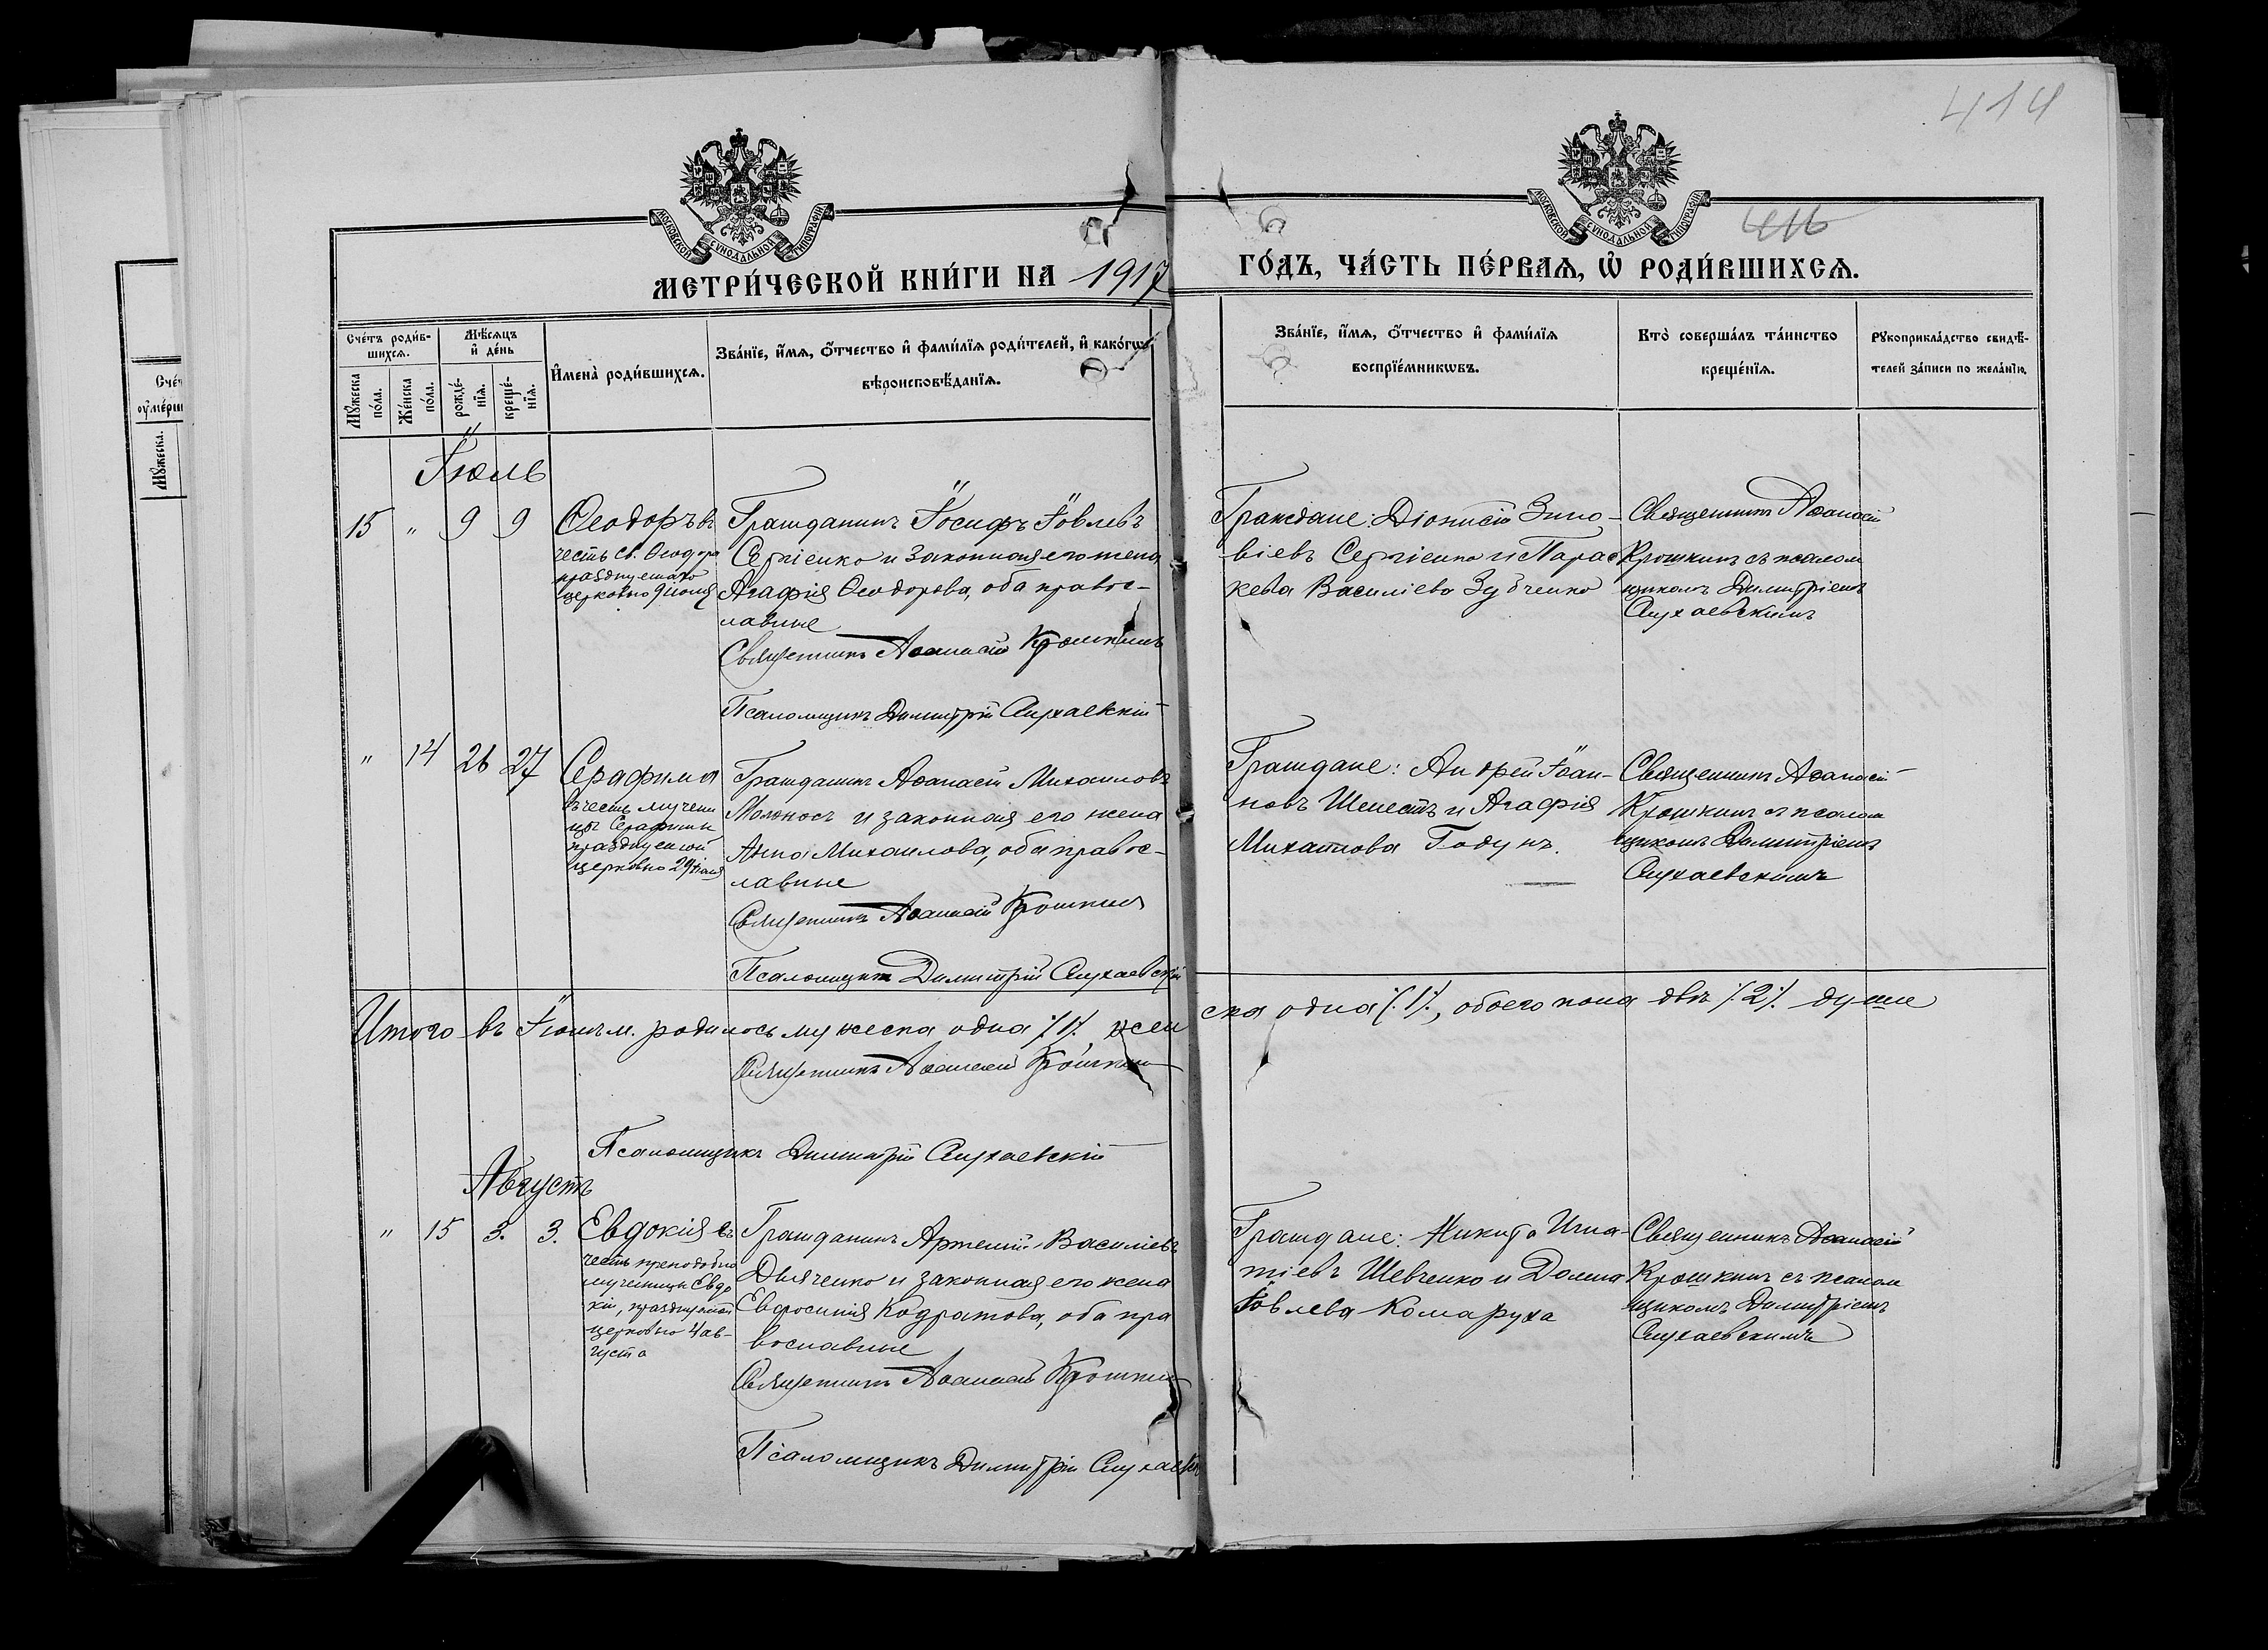 414
416
МОСКОВСКОЙ СУНОДАЛЬНОЙ ТИПОГРАФІИ
МОСКОВСКОЙ СУНОДАЛЬНОЙ ТИПОГРАФІИ
МЕТРИ́ЧЕСКОЙ КНИ́ГИ НА 1917
ГО́ДЪ, ЧА́СТЬ ПЕ́РВАѦ, Ѡ҆ РОДИ́ВШИХСѦ.
Сче́тъ роди́в-
шихсѧ.
Мѣ́сѧцъ
и҆ де́нь
Мꙋ́жеска
по́ла.
Же́нска
по́ла.
рожде́-
нїѧ.
креще́-
нїѧ.
И҆мена̀ роди́вшихсѧ.
Зва́нїе, и҆́мѧ, ѻ҆́тчество и҆ фами́лїѧ роди́телей, и҆ како́гѡ
вѣроисповѣ́данїѧ.
Зва́нїе, и҆́мѧ, ѻ҆́тчество и҆ фами́лїѧ
воспрїе́мникѡвъ.
Кто̀ соверша́лъ та́инство
креще́нїѧ.
Рꙋкоприкла́дство свидѣ́-
телей за́писи по жела́нїю.
Іюль
15 " 9 9
Ѳеодоръ въ
честь св. Ѳеодора
празднуемаго
церковію 9 іюля
Гражданинъ Іосифъ Іовлевъ
Сергіенко и законная его жена
Агафія Ѳеодорова, оба правос-
лавные
Священникъ Аѳанасій Крошкинъ
Псаломщикъ Димитрій Слухаевскій
Граждане: Діонисій Зино-
віевъ Сергіенко и Парас
кева Василіева Зубченко
Священникъ Аѳанасій
Крошкинъ съ псалом
щикомъ Димитріемъ
Слухаевскимъ
" 14 26 27
Серафима
въ честь мучени
цы Серафимы
празднуемой
церковью 29 іюля
Гражданинъ Аѳанасій Михаиловъ
и законная его жена
Анна Михаилова, оба правос-
лавные
Священникъ Аѳанасій Крошкинъ
Псаломщикъ Димитрій Слухаевскій
Граждане: Андрей Іоан-
новъ Шелестъ и Агафія
Михаилова Годунъ.
Священникъ Аѳанасій
Крошкинъ съ псалом
щикомъ Димитріемъ
Слухаевскимъ
Итого въ Іюлѣ м. родилось мужеска одна /.1/. жен
ска одна /.1/., обоего пола двѣ /.2/. души
Священникъ Аѳанасій Крошкинъ
Псаломщикъ Димитрій Слухаевскій
Августъ
" 15 3. 3.
Евдокія въ
честь преподобно
мученицы Евдо
кіи, празднуемой
церковью 4 ав-
густа
Гражданинъ Артемій Василіевъ
Дьяченко и законная его жена
Евфросинія Кодратова, оба пра
вославные
Священникъ Аѳанасій Крошкинъ
Псаломщикъ Димитрій Слухаевскій
Граждане: Никита Игна
тіевъ Шевченко и Домна
Іовлева Комаруха
Священникъ Аѳанасій
Крошкинъ съ псалом
щикомъ Димитріемъ
Слухаевскимъ
Сче́т
ᲂу҆ме́рш
Мꙋ́жеска.